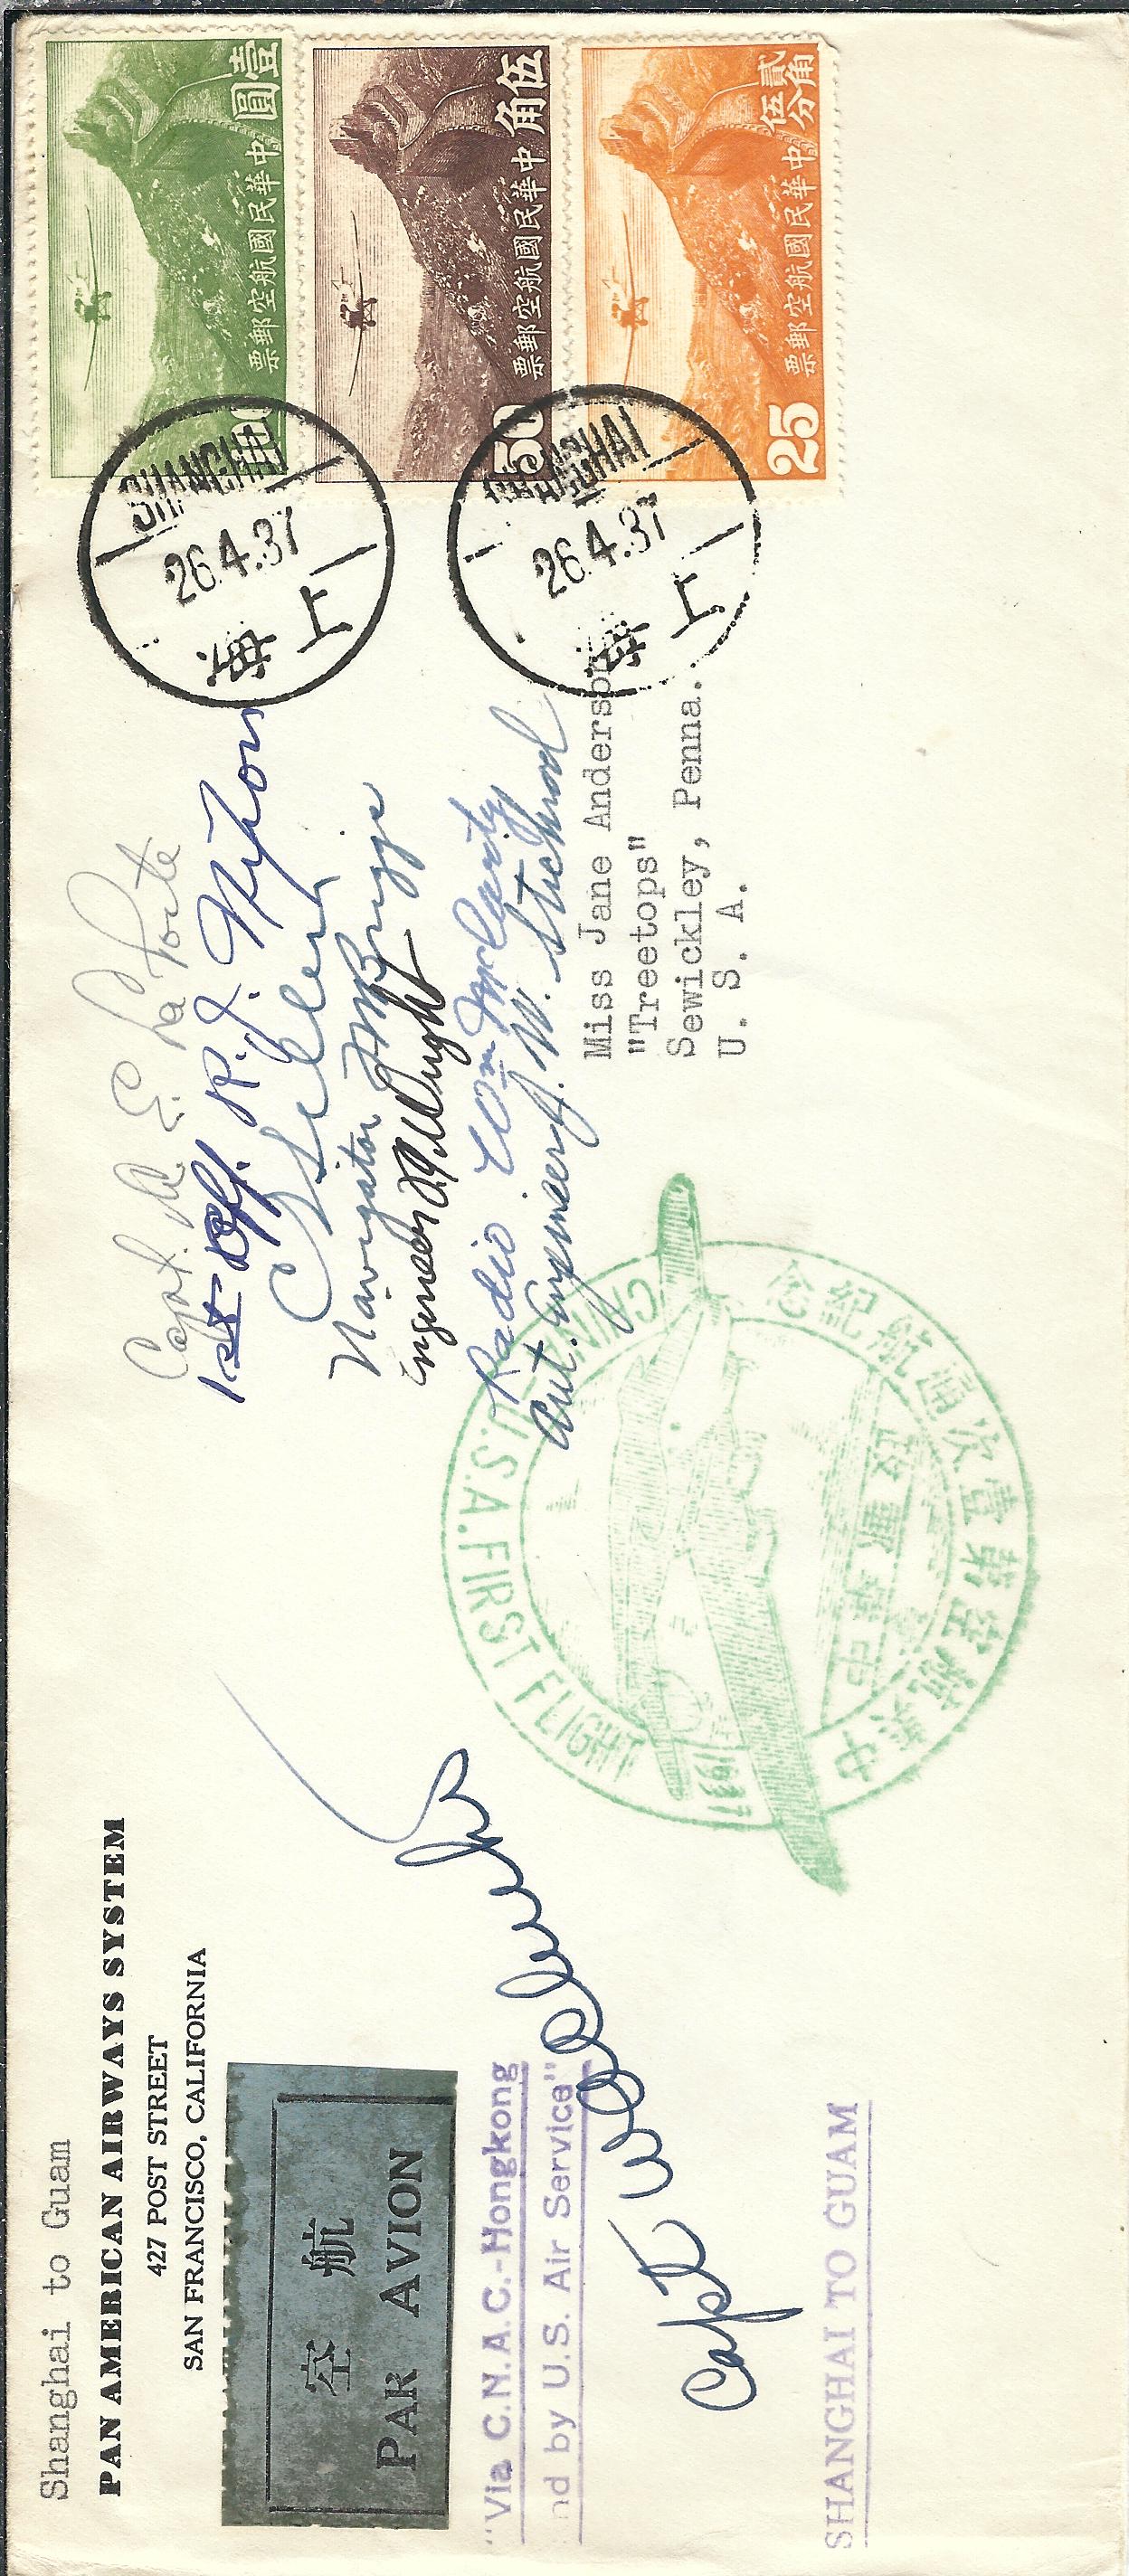 Shanghai to Guam
PAN AMERICAN AIRWAYS SYSTEM
427 POST STREET
SAN FRANCISCO, CALIFORNIA
空 航
PAR AVION
"Via C.N.A.C.-Hongkong
nd by U.S. Air Service"
SHANGHAI TO GUAM
Capt
Capt. M. E. LaPorte
1st Off. R. J. Nixon
Navigator J M Briggs
Engineer Wright
Radio Wm McCarty
Ast. Engineer J. W.
CHINA U.S.A. FIRST FLIGHT
1937
中美航空第壹次通航紀念
中華郵政
Miss Jane Anderson
"Treetops"
Sewickley, Penna.
U. S. A.
壹圓
中華民國航空郵票
伍角
中華民國航空郵票
50
貳角
伍分
中華民國航空郵票
25
SHANGHAI
26.4.37
上海
SHANGHAI
26.4.37
上海